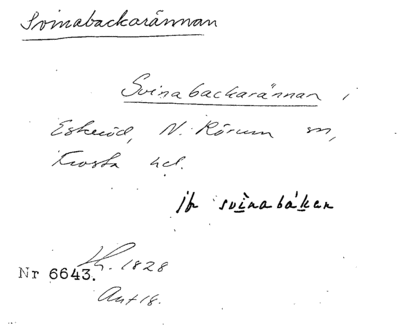 Svinabackarännan
Svinabackarännan i
Eskeröd, N. Rörum sn,
Frosta hd.
jfr svinabáken
Nr 6643. Lh. 1828
Ant 18.